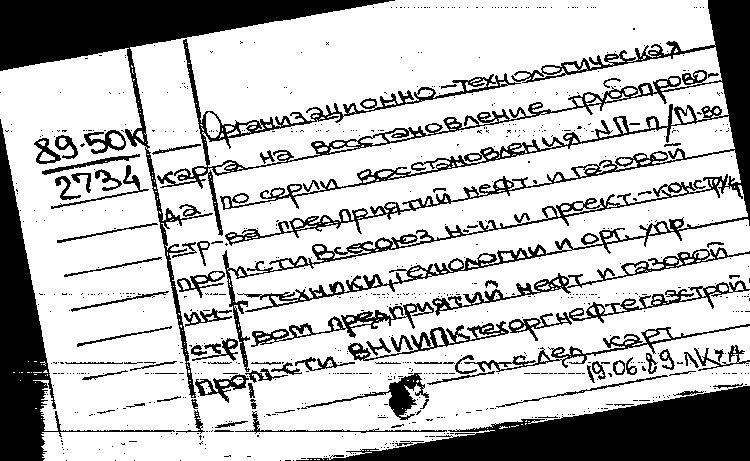 89-50К
2734
Организационно-технологическая
карта на восстановление трубопрово-
да по сории восстановления №П-п/М-во
стр-ва предприятий нефт. и газовой
пром-сти, Всесоюз. н.-и. и проект.-констр.
ин-т техники, технологии и орг. упр.
стр-вом предприятий нефт. и газовой
пром-сти ВНИИПКтехоргнефтегазстрой
См. след. карт.
19.06.89